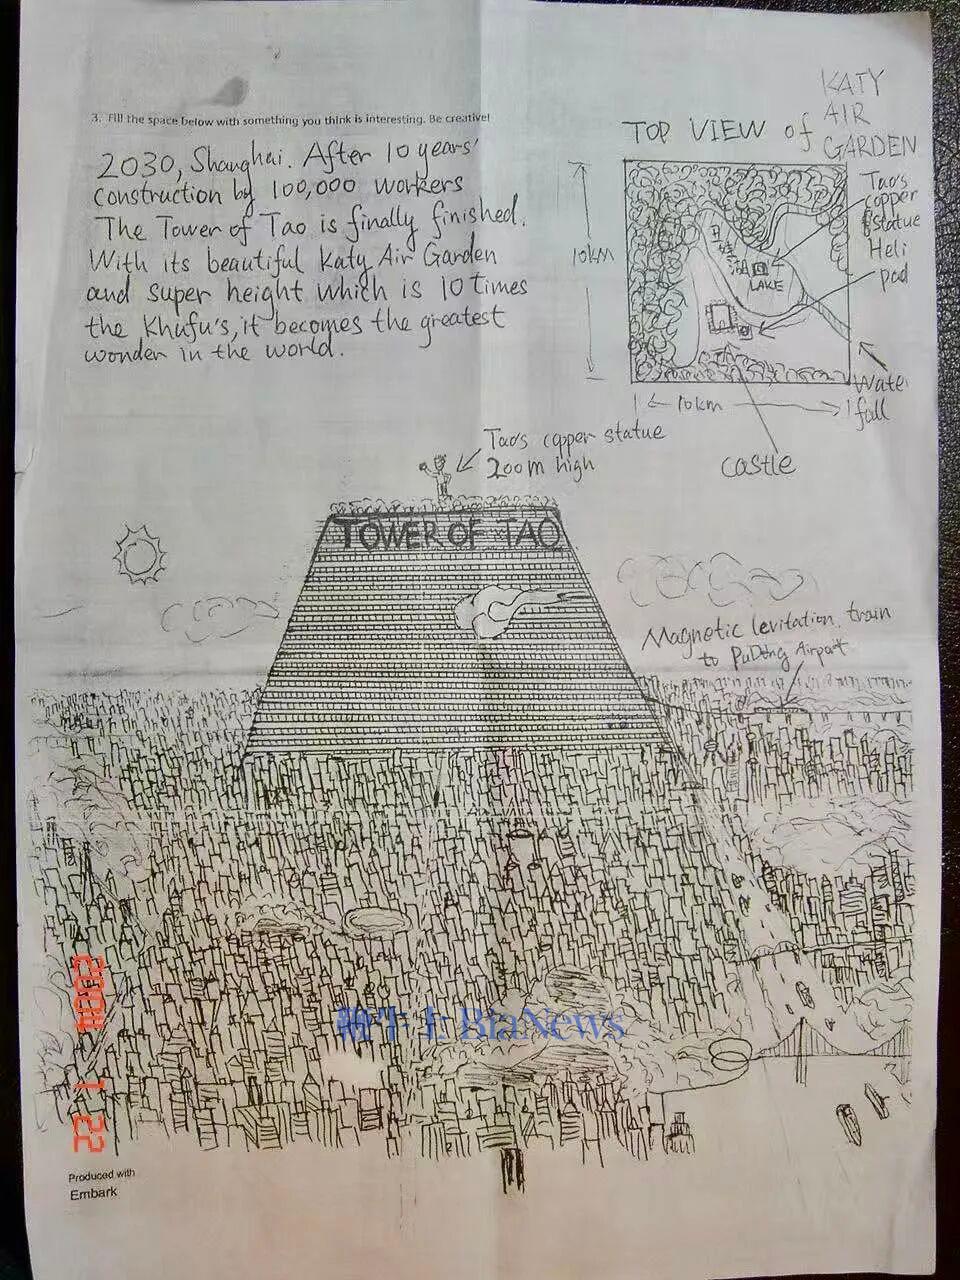 3. Fill the space below with something you think is interesting. Be creative!
2030, Shanghai. After 10 years'
construction by 100,000 workers
The Tower of Tao is finally finished.
With its beautiful Katy Air Garden
and super height which is 10 times
the Khufu's, it becomes the greatest
wonder in the world.
TOP VIEW of
KATY
AIR
GARDEN
10km
LAKE
Tao's
copper
statue
Heli
pad
Water
fall
10km
castle
Tao's copper statue
200m high
TOWER OF TAO
Magnetic levitation train
to PuDong Airport
BiaNews
2004 1 22
Produced with
Embark